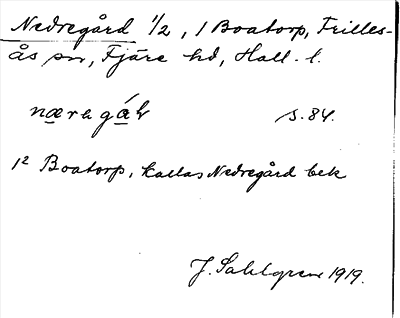 Nedregård 1/2, 1 Boatorp, Frilles-
ås sn, Fjäre hd, Hall. l.
s. 84.
1² Boatorp, kallas Nedregård bek
J. Sahlgren 1919.